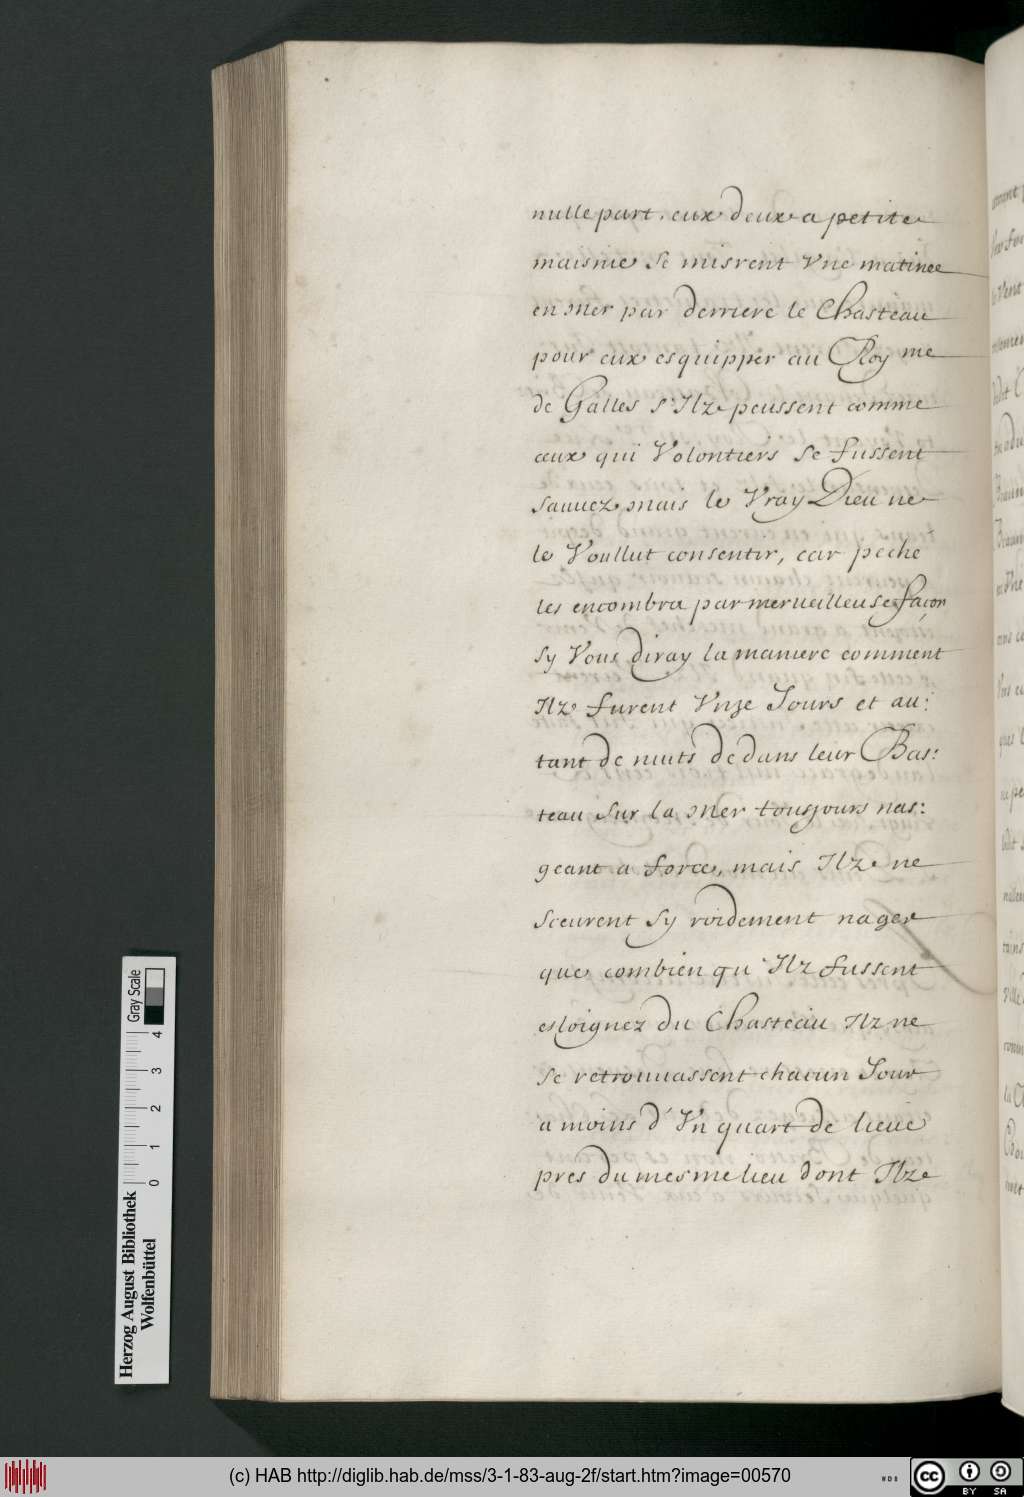 nulle part. eux deux a petite
maisnie se misrent Vne matinee
en mer par derriere le Chasteau
pour eux esquipper au Roy me
de Galles s'Ilz peussent comme
ceux qui Volontiers se fussent
sauuez mais le Vray Dieu ne
le Voullut consentir, car peché
les encombra par merueilleuse façon
sy Vous diray la maniere comment
Ilz furent Vnze Jours et au:
tant de nuits de dans leur Bas:
teau sur la mer tousjours nas:
geant a force, mais Ilz ne
sceurent sy roidement nager
que combien qu'Ilz fussent
esloignez du Chasteau Ilz ne
se retrouuassent chacun Jour
a moins d'Vn quart de lieue
pres du mesme lieu dont Ilz
Gray Scale
4
3
2
1
0
Herzog August Bibliothek
Wolfenbüttel
(c) HAB http://diglib.hab.de/mss/3-1-83-aug-2f/start.htm?image=00570
WDB
cc
BY SA